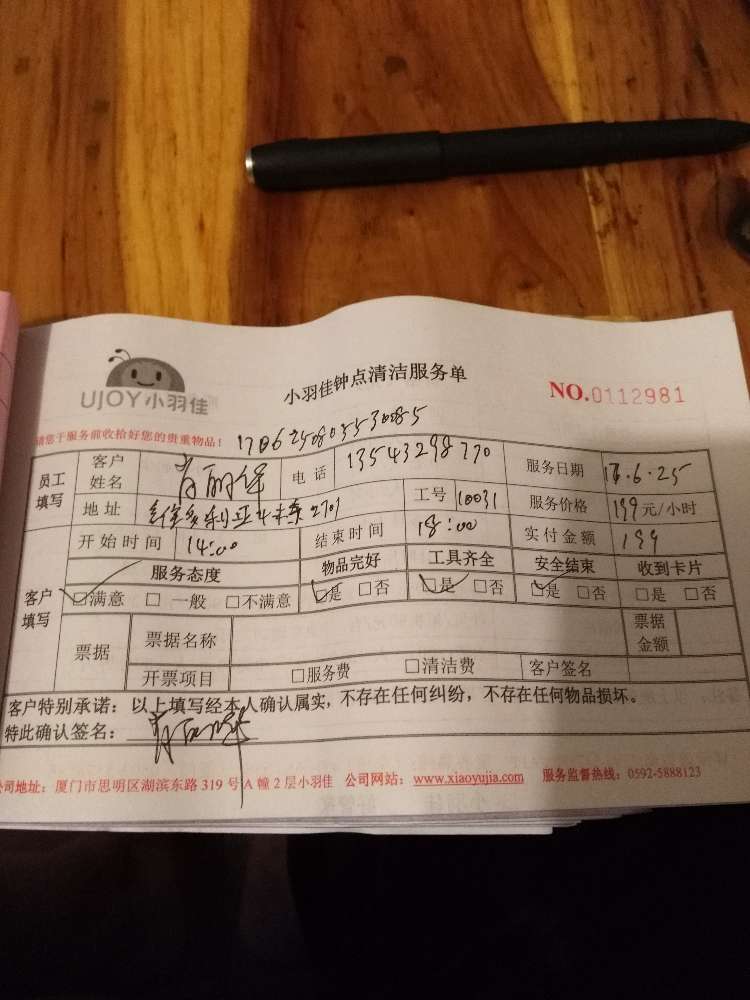 UJOY小羽佳
小羽佳钟点清洁服务单
NO.0112981
请您于服务前收拾好您的贵重物品！ 1706250803530085
员工填写 客户姓名 电话 13543298770 服务日期 17.6.25
地址 2701 工号 10031 服务价格 199元/小时
开始时间 14:00 结束时间 18:00 实付金额 199
客户填写 服务态度 物品完好 工具齐全 安全结束 收到卡片
□满意 □一般 □不满意 □是 □否 □是 □否 □是 □否 □是 □否
票据 票据名称 票据金额
开票项目 □服务费 □清洁费 客户签名
客户特别承诺：以上填写经本人确认属实，不存在任何纠纷，不存在任何物品损坏。
特此确认签名：
公司地址：厦门市思明区湖滨东路319号A幢2层小羽佳 公司网站：www.xiaoyujia.com 服务监督热线：0592-5888123